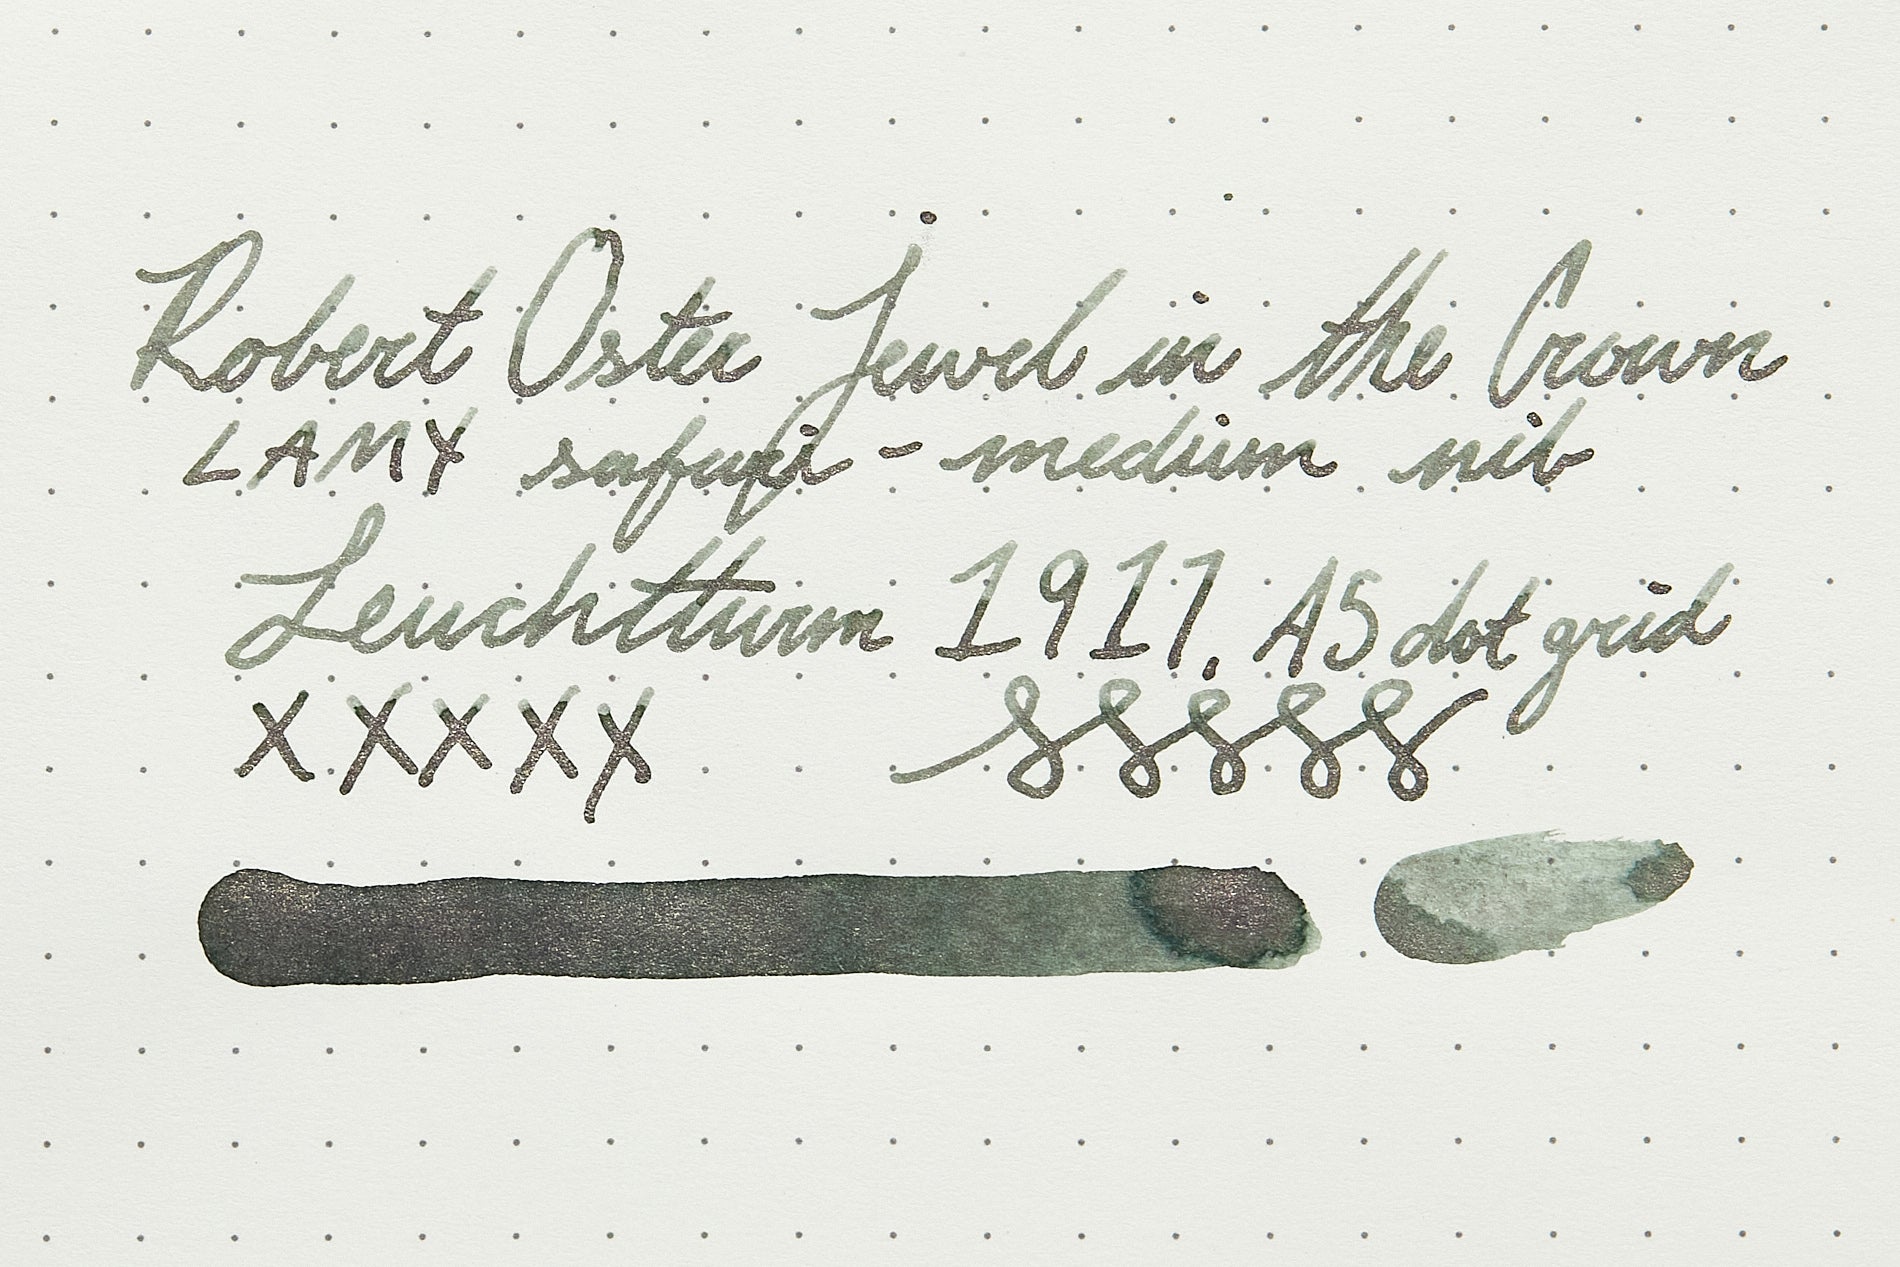 Robert Oster Jewel in the Crown
LAMY safari - medium nib
Leuchtturm 1917, A5 dot grid
x x x x x